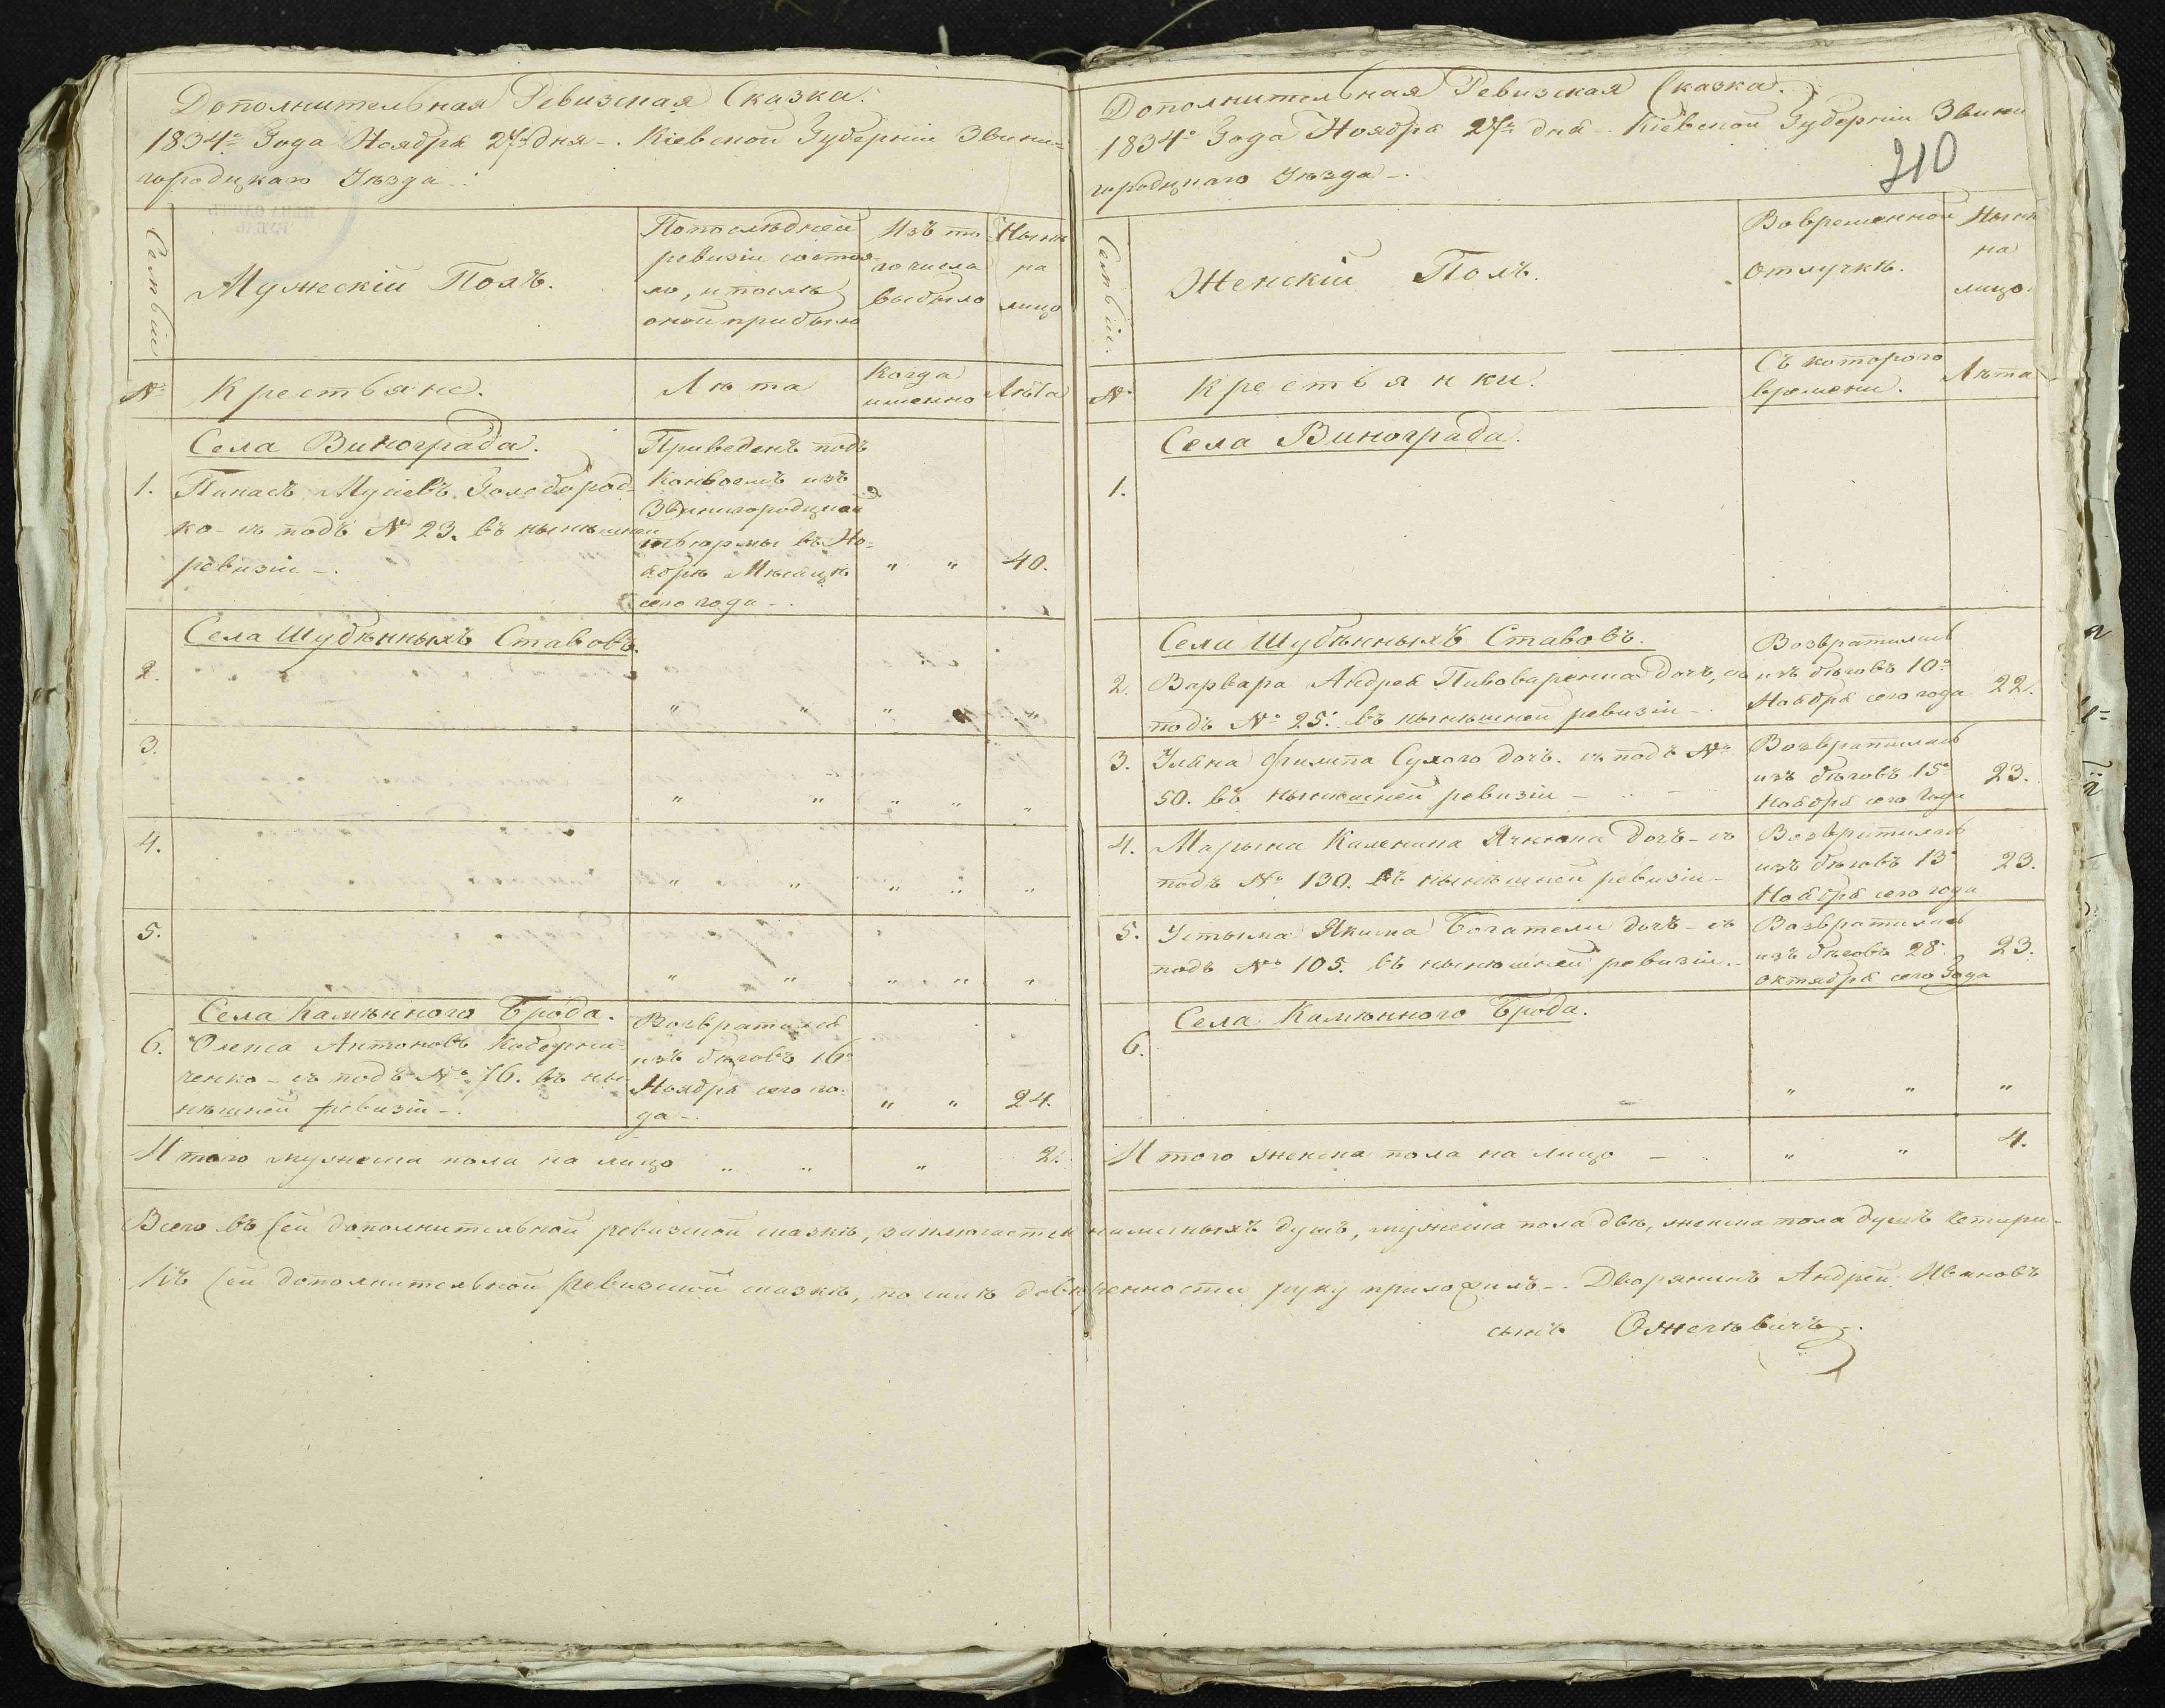 Дополнительная Ревизская Сказка.
1834го Года Ноября 27го дня -. Кіевской Губерніи Звини=
городцкаго Уѣзда -.
Семьи
Мужескій Полъ.
По последней
ревизіи состоя-
ло, и после
оной прибыло
Изъ то
го числа
выбыло
Нынѣ
на
лицо
№
Крестьяне.
Лѣта
Когда
именно
Лѣта
Села Винограда.
1. Панасъ Мусіевъ Голобород-
ко - съ подъ № 23. въ нынѣшней
ревизіи -.
Приведенъ подъ
Конвоемъ изъ
Звинигородцкой
тьюрмы въ Но-
ябрѣ Мѣсяцѣ
сего года -.
" " 40.
Села Шубѣнныхъ Ставовъ.
2.
" " " " "
3.
" " " " "
4.
" " " " "
5.
" " " " "
Села Камѣнного Брода.
6. Олекса Антоновъ
ченко - съ подъ № 76. въ ны-
нѣшней ревизіи -.
Возвратился
изъ бѣговъ 16го
Ноября сего го-
да -.
" " 24.
Итого мужеска пола на лицо " " " 2.
Дополнительная Ревизская Сказка.
1834го Года Ноября 27го дня -. Кіевской Губерніи Звини
городцкаго Уѣзда -.
210
Семьи.
Женскій Полъ.
Во временной
отлучкѣ.
Нынѣ
на
лицо.
№
Крестьянки.
Съ которого
времени.
Лѣта
Села Винограда.
1.
Села Шубѣнныхъ Ставовъ.
2. Варвара Андрея Пивоваренка дочь, съ
подъ № 25. въ нынѣшней ревизіи -.
Возвратилась
изъ бѣговъ 10го
Ноября сего года
22.
3. Уляна Филипа Сухого дочь. съ подъ №
50. въ нынѣшней ревизіи -
Возвратилась
изъ бѣговъ 15
Ноября сего года
23.
4. Марына дочь - съ
подъ № 130. въ нынѣшней ревизіи -
Возвратилась
изъ бѣговъ 13
Ноября сего года
23.
5. Устына Якима Богатели дочь - съ
подъ № 105. въ нынѣшней ревизіи. -
Возвратилась
изъ бѣговъ 28
октября сего Года
23.
Села Камѣнного Брода.
6.
" " "
Итого женска пола на лицо - " " 4.
Всего въ сей дополнительной ревизской сказкѣ, заключается наличныхъ душъ, мужеска пола двѣ, женска пола душъ четыри -
Къ сей дополнительной ревизской сказкѣ, по довѣренности руку приложилъ -. Дворянинъ Андрей Ивановъ
сынъ